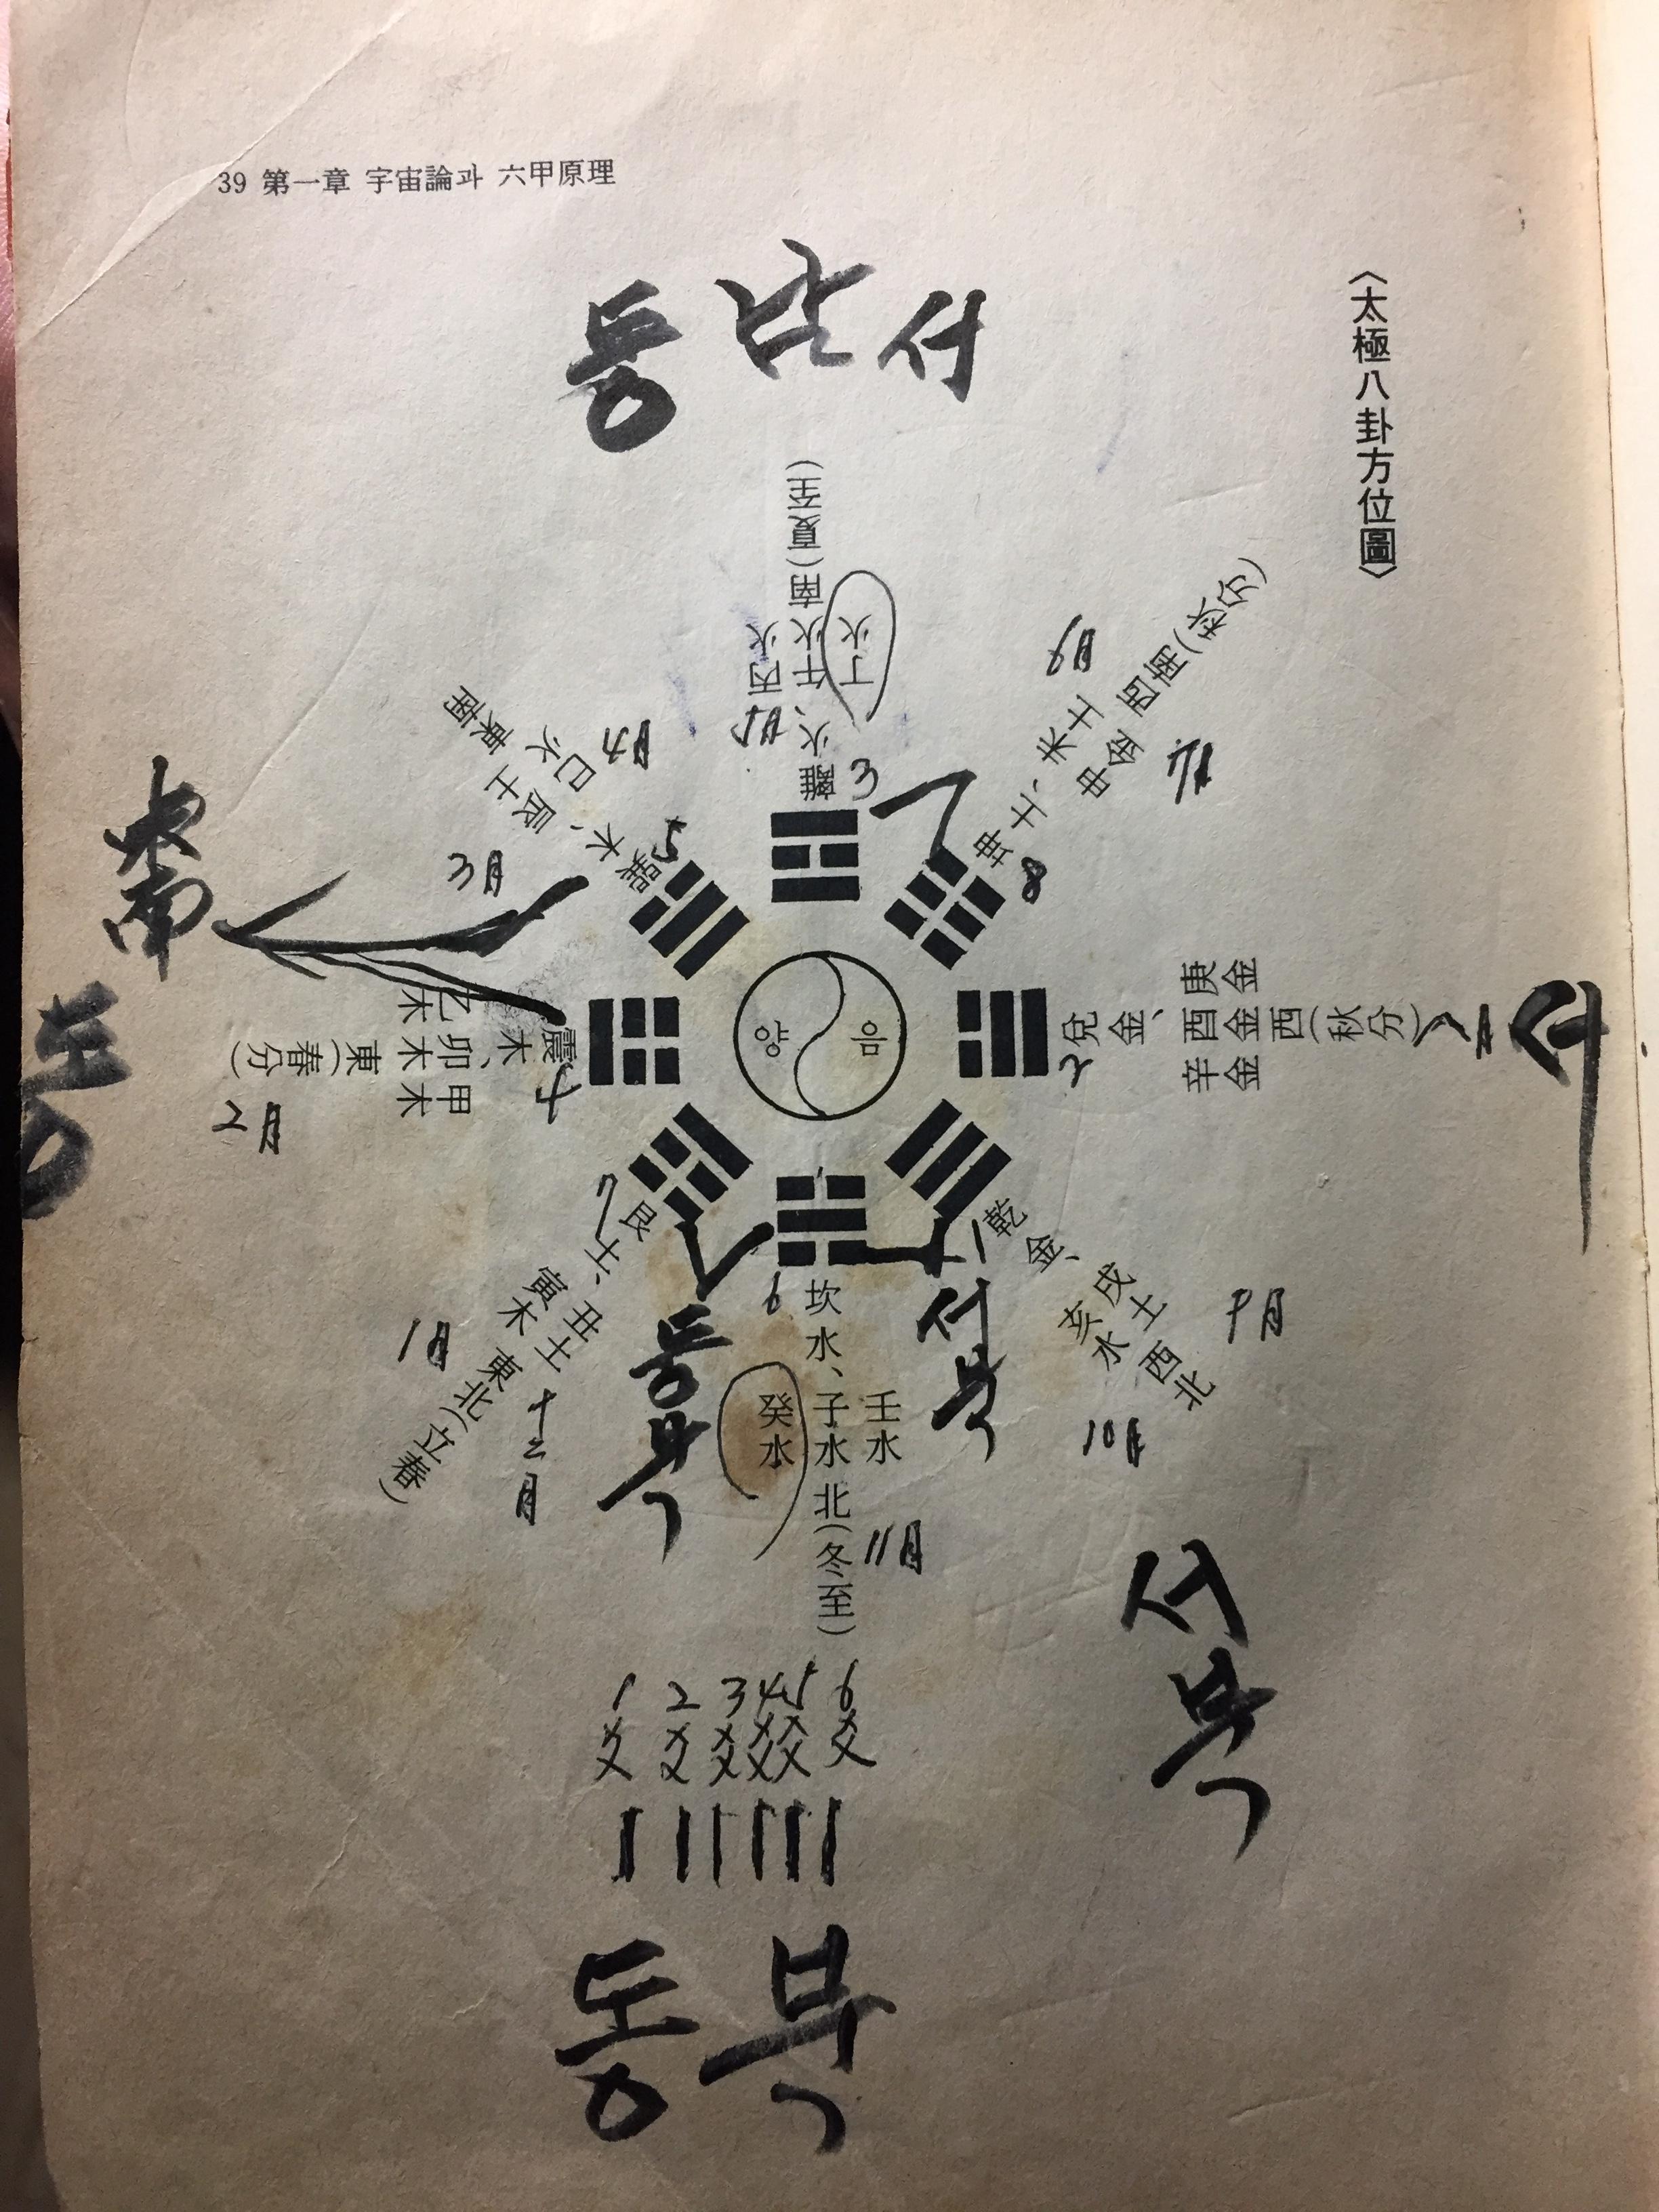 39 第一章 宇宙論과 六甲原理
〈太極八卦方位圖〉
동 남 서
離火、丙火 午火 丁火 南(夏至)
5月
3
坤土、未土 申金 西南(秋分)
6月
7月
8
巽木、辰土 巳火 東南
4月
3月
5
東南
震木、乙木 卯木 甲木 東(春分)
2月
4
동
양
음
兌金、庚金 酉金 辛金 西(秋分)
2
서
艮土、丑土 寅木 東北(立春)
7
1月
十二月
동북
坎水、壬水 子水 癸水 北(冬至)
6
11月
乾金、戌土 亥水 西北
一
9月
10月
서북
서북
1 2 3 4 5 6
爻 爻 爻 爻 爻 爻
동 북